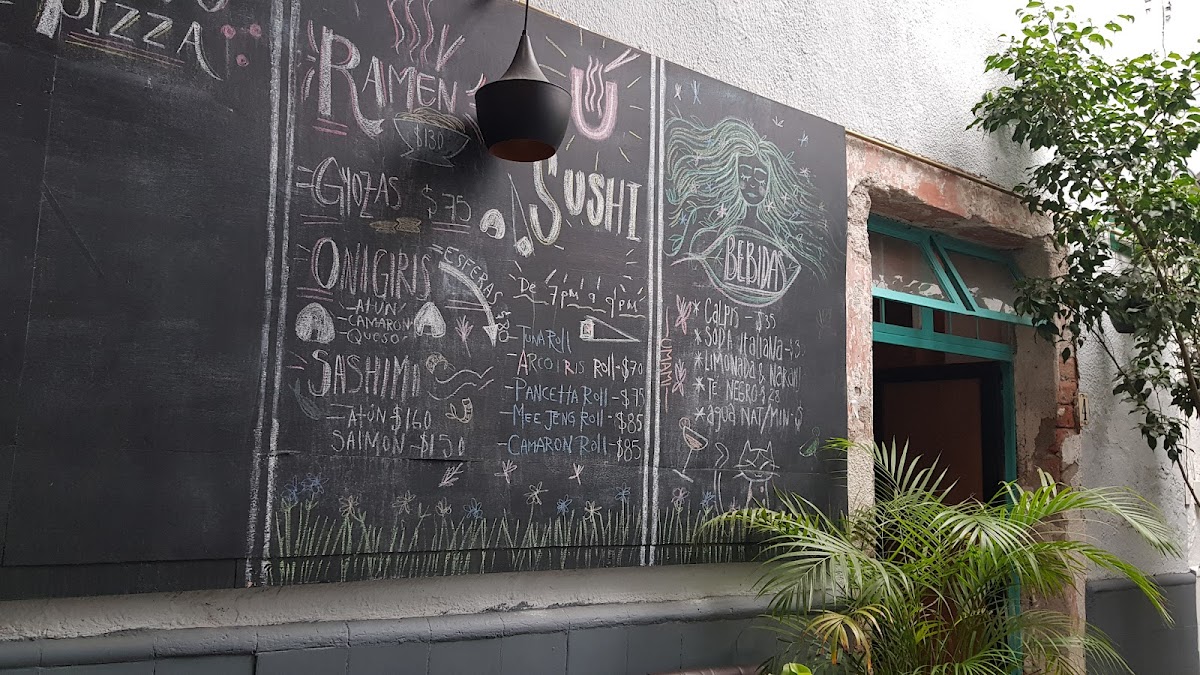 PIZZA
RAMEN
$130
GYOZAS $75
ONIGIRIS
ESFERAS $80
-ATÚN
-CAMARON
-QUESO
SASHIMI
-ATÚN $160
SALMON-$150
SUSHI
De 7pm a 9pm
-TUNA ROLL
-ARCOIRIS ROLL-$70
-PANCETTA ROLL-$75
-MEE JENG ROLL-$85
-CAMARON ROLL-$85
BEBIDAS
UMAMI
* CALPIS - $35
* SODA ITALIANA-$3
* LIMONADA & NARANJ
* TE NEGRO-$28
* agua NAT/MIN-$